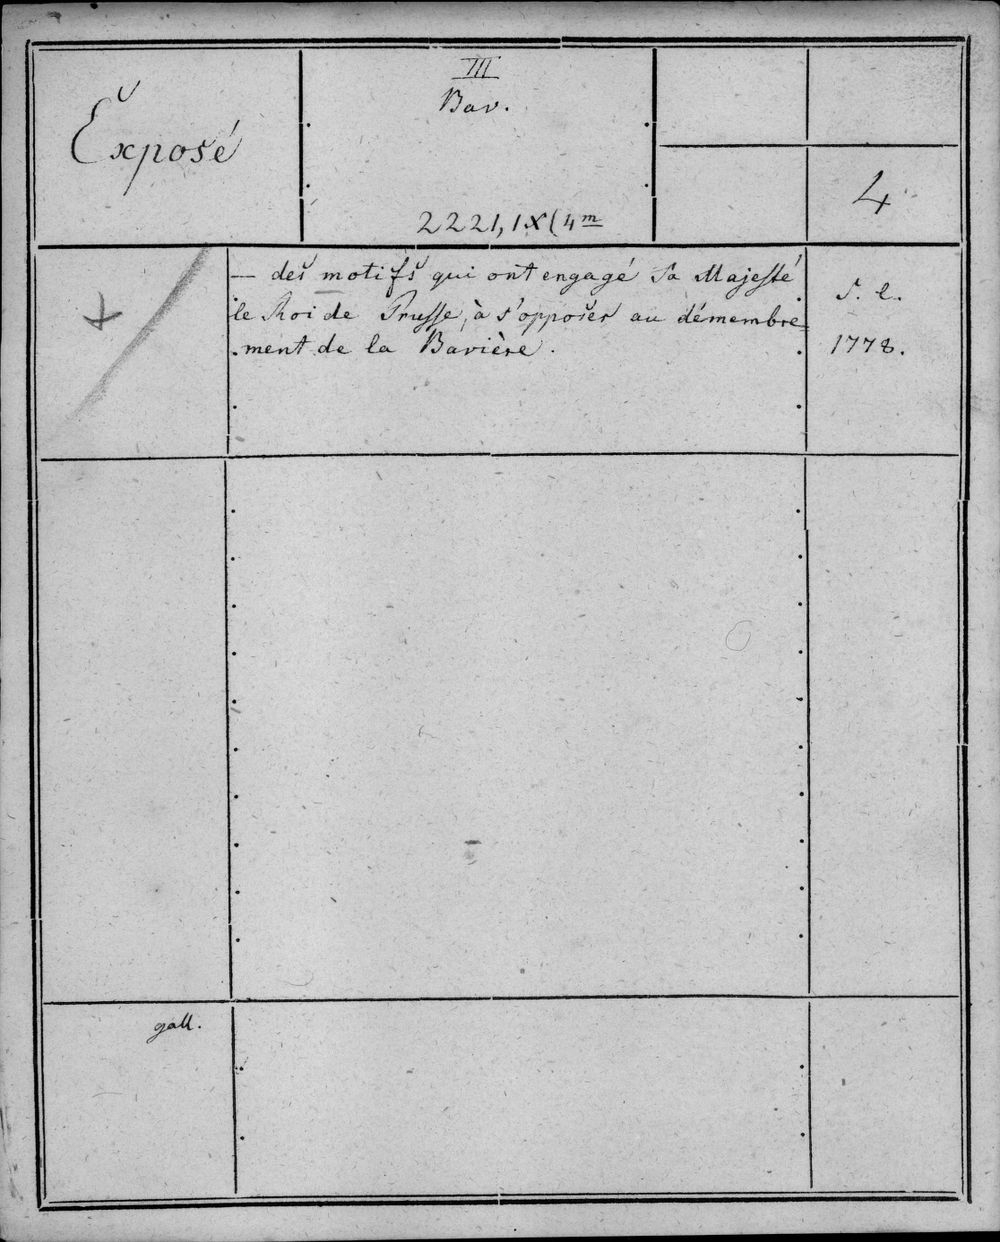 Exposé
III
Bav.
2221,IX(4m
4
— des motifs qui ont engagé Sa Majesté
le Roi de Prusse, à s'opposer au démembre=
ment de la Bavière.
S. l.
1778.
gall.